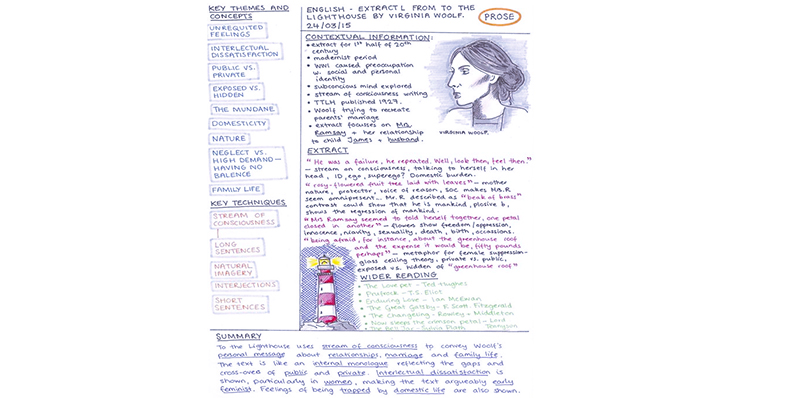 KEY THEMES AND
CONCEPTS
UNREQUITED
FEELINGS
INTERLECTUAL
DISSATISFACTION
PUBLIC VS.
PRIVATE
EXPOSED VS.
HIDDEN
THE MUNDANE
DOMESTICITY
NATURE
NEGLECT VS.
HIGH DEMAND—
HAVING NO
BALENCE
FAMILY LIFE
KEY TECHNIQUES
STREAM OF
CONSCIOUSNESS
LONG
SENTENCES
NATURAL
IMAGERY
INTERJECTIONS
SHORT
SENTENCES
ENGLISH - EXTRACT 1 FROM TO THE
LIGHTHOUSE BY VIRGINIA WOOLF.
24/03/15
PROSE
CONTEXTUAL INFORMATION:
• extract for 1st half of 20th
century
• modernist period
• WWI caused preoccupation
w. social and personal
identity
• subconcious mind explored
• stream of conciousness writing
• TTLH published 1927.
• Woolf trying to recreate
parents' marriage
• extract focusses on Mrs
Ramsay + her relationship
to child James + husband.
VIRGINIA WOOLF.
EXTRACT
"He was a failure, he repeated. Well, look then, feel then."
— stream on consciousness, talking to herself in her
head, ID, ego, superego? Domestic burden.
"rosy-flowered fruit tree laid with leaves" — mother
nature, protector, voice of reason, SOC makes MB.R
seem omnipresent... Mr.R described as "beak of brass"
contrast could show that he is mankind, plosive b,
shows the regression of mankind.
"Mrs Ramsay seemed to fold herself together, one petal
closed in another" — flowers show freedom/oppression,
innocence, niavity, sexuality, death, birth, occassions.
"being afraid, for instance, about the greenhouse roof
and the expense it would be, fifty pounds
perhaps" — metaphor for female suppression-
glass ceiling theory, private vs. public,
exposed vs. hidden of "greenhouse roof"
WIDER READING
• The Love pet - Ted Hughes
• Prufrock - T.S. Eliot
• Enduring Love - Ian McEwan
• The Great Gatsby - F. Scott. Fitzgerald
• The Changeling - Rowley + Middleton
• Now sleeps the crimson petal - Lord
Tennyson
• The Bell Jar - Sylvia Plath
SUMMARY
To the Lighthouse uses stream of consciousness to convey Woolf's
personal message about relationships, marriage and family life.
The text is like an internal monologue reflecting the gaps and
cross-overs of public and private. Interlectual dissatisfaction is
shown, particularly in women, making the text argueably early
feminist. Feelings of being trapped by domestic life are also shown.